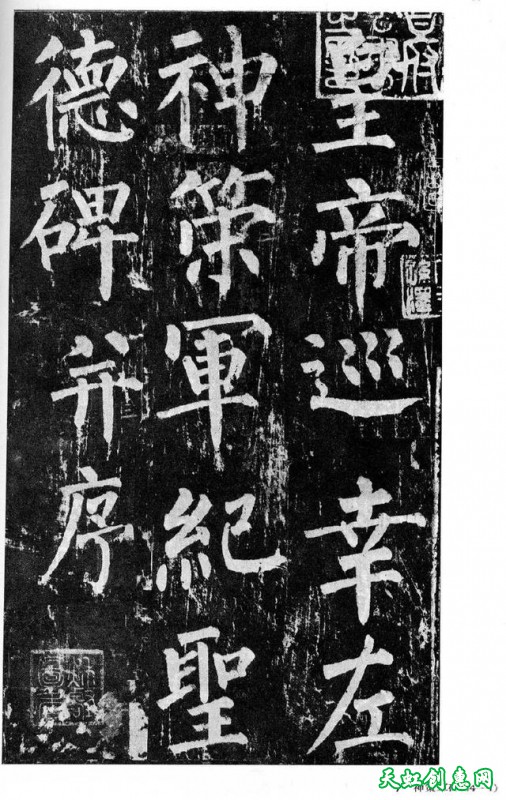 皇帝巡幸左
神策軍紀聖
德碑并序
天虹创意网